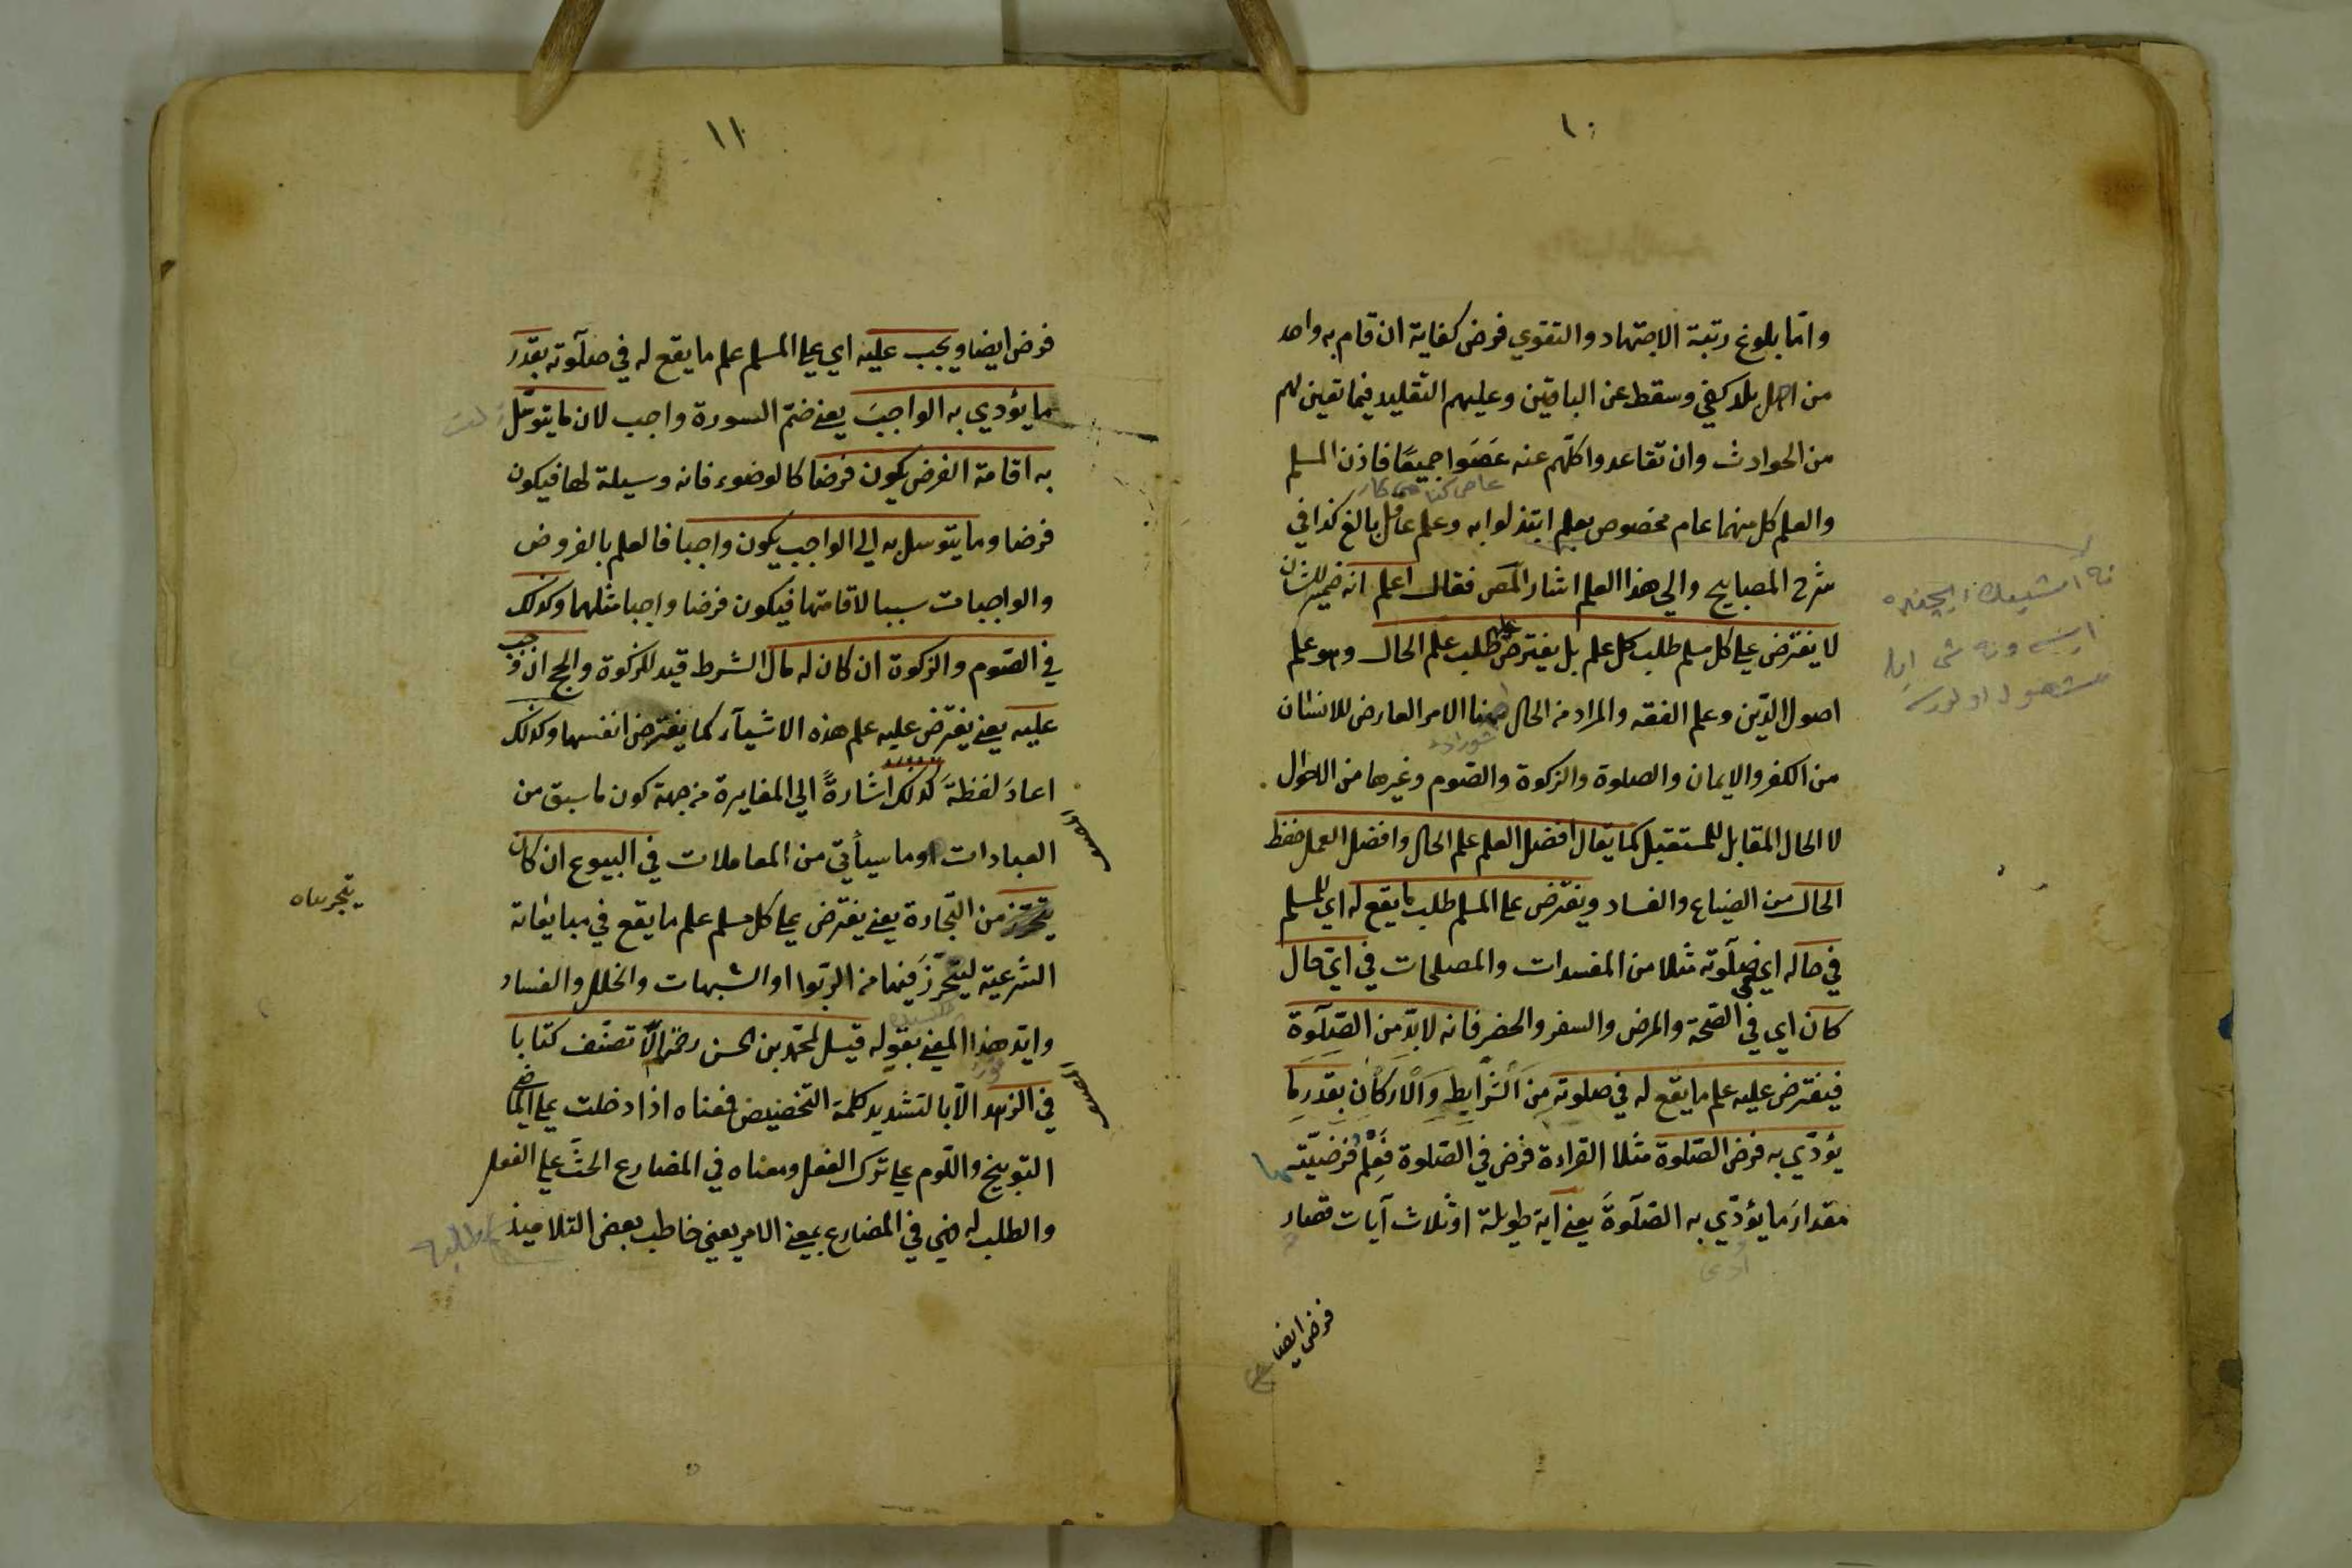 ١٠
وامّا بلوغ رتبة الاجتهاد والتقوي فرض كفاية ان قام به واحد
من اهل بلد كفي وسقط عن الباقين وعليهم التقليد فيما تعين لهم
من الحوادث وان تقاعدوا كلّهم عنه عَصَوا جميعًا فاذن المسلم
والعلم كل منهما عام مخصوص بعلم ابتذلوا به وعلم عاقل بالغ كذا في
شرح المصابيح والي هذا العلم اشار المص فقال اعلم انه ضمير للشان
لا يفترض علي كل مسلم طلب كل علم بل يفترض عليه طلب علم الحال وهو علم
اصول الدّين وعلم الفقه والمراد من الحال ههنا الامر العارض للانسان
من الكفر والايمان والصلوة والزكوة والصّوم وغيرها من الاحوال
لا الحال المقابل للمستقبل كما يقال افضل العلم علم الحال وافضل العمل حفظ
الحال من الضياع والفساد ويفترض علي المسلم طلب ما يقع له اي للمسلم
في حاله اي في صلَوته مثلا من المفسدات والمصلحات في ايّ حال
كان اي في الصّحة والمرض والسفر والحضر فانه لا بدّ من الصّلَوة
فيفترض عليه علم ما يقع له في صلوته مِنَ الْشَّرايطِ وَالْاركَان بقدَرِ ما
يؤدّي به فرض الصّلوة مثلا القراءة فرض في الصّلوة فَعِلْمُ فرضيّتها
مقدارَ ما يؤدّي به الصّلَوةَ يعني اية طويلة او ثلاث آيات قصار
فرض ايضا
١١
فرض ايضا ويجب عليه اي علي المسلم علم ما يقع له في صلَوته بقدَر
ما يؤدي به الواجبَ يعني ضمّ السورة واجب لان ما يتوسّل
به اقامة الفرض يكون فرضا كالوضوء فانه وسيلة لها فيكون
فرضا وما يتوسل به الي الواجب يكون واجبا فالعلم بالفروض
والواجبات سببا لاقامتها فيكون فرضا واجبا مثلهما وكذلك
في الصّوم والزكوة ان كان له مال الشرط قيد للزكوة والحج ان وجب
عليه يعني يفترض عليه علم هذه الاشيآء كما يفترض انفسها وكذلك
اعادَ لفظةَ كذلك اشارةً الي المغايرة من جهة كون ما سبق من
العبادات وما سيأتي من المعاملات في البيوع ان كان
من التّجارة يعني يفترض علي كل مسلم علم ما يقع في مبايعاته
الشّرعية ليتحرّزَ فيها من الرّبوا او الشبهات والخلل والفساد
وايّد هذا المعني بقوله قيل لمحمّد بن الحسن رحمه الله الّا تصنّف كتابا
في الزهد الّا بالتشديد كلمة التخضيض فمعناه اذا دخلت علي الماضي
التوبيخ واللّوم علي ترك الفعل ومعناه في المضارع الحثّ علي الفعل
والطلب له فهي في المضارع بمعني الامر يعني خاطب بعض التلاميذ